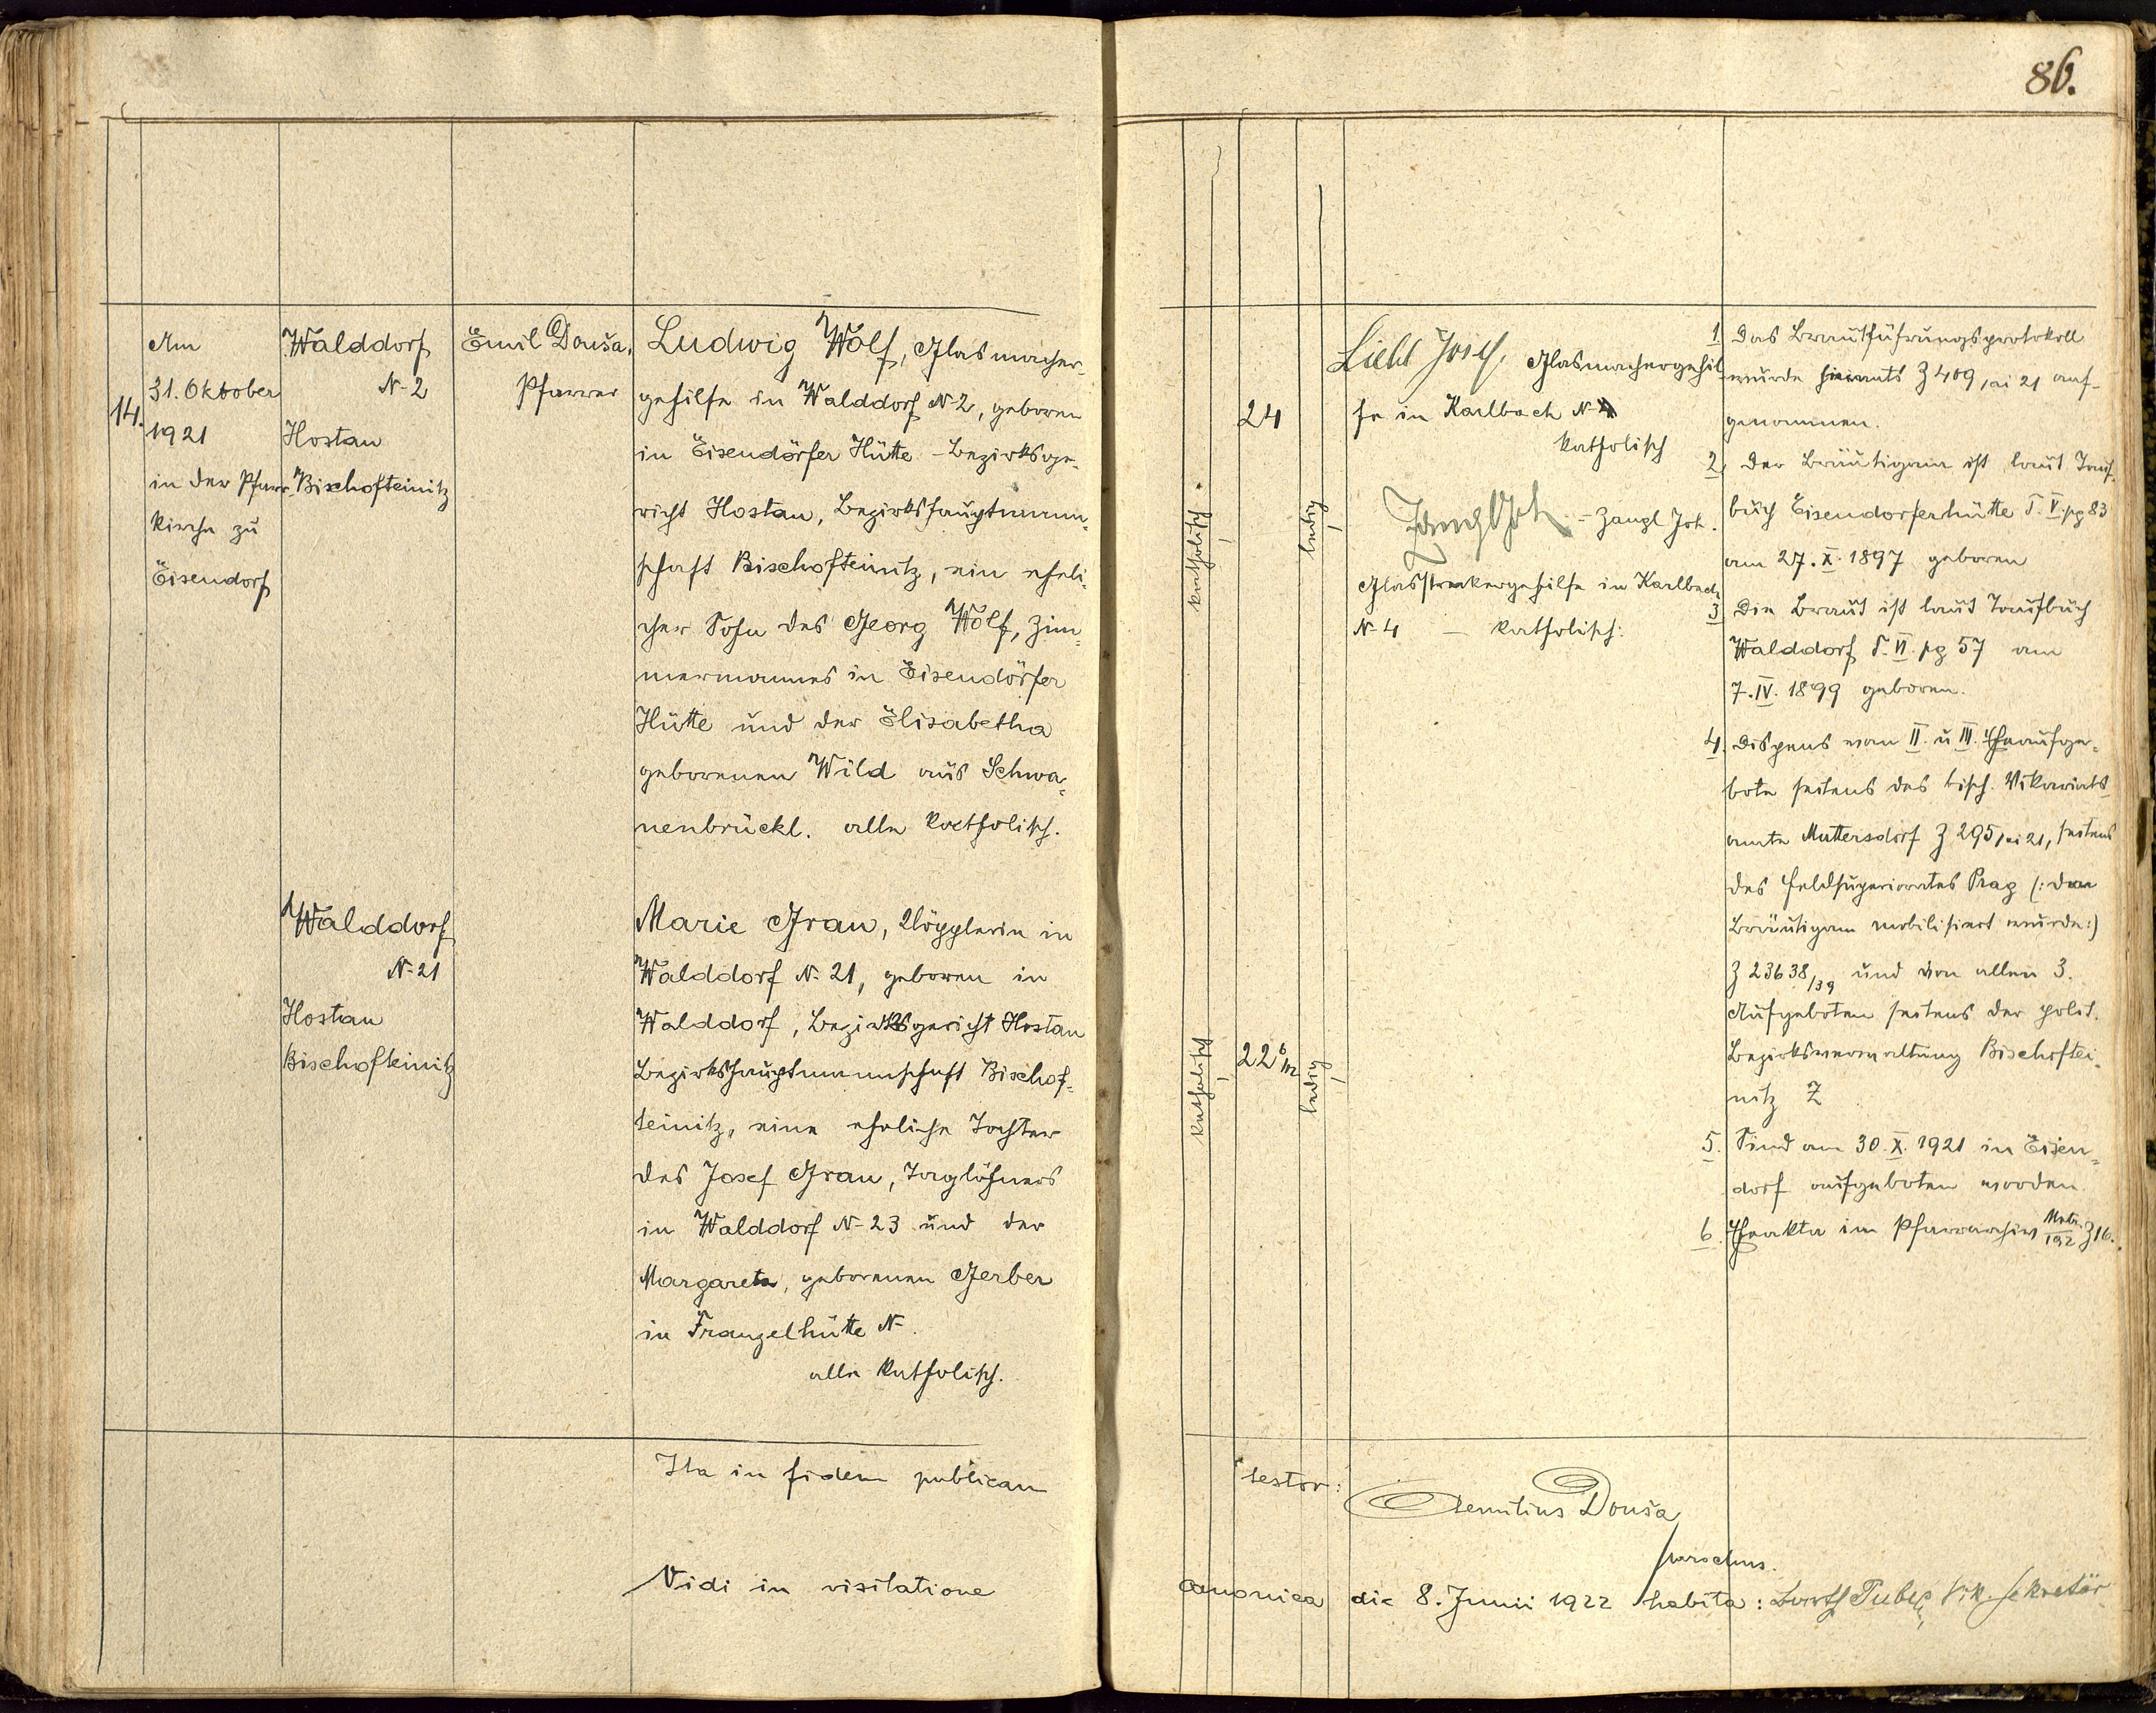 86.
14.
Am
31. Oktober
1921
in der Pfarr-
kirche zu
Eisendorf
Walddorf
N-2
Hostau
Bischofteinitz
Emil Douša,
Pfarrer
Ludwig Wolf, Glasmacher-
gehilfe in Walddorf N-2, geboren
in Eisendörfer Hütte - Bezirksge-
richt Hostau, Bezirkshauptmann-
schaft Bischofteinitz, ein eheli-
cher Sohn des Georg Wolf, Zim-
mermannes in Eisendörfer
Hütte und der Elisabetha
geborenen Wild aus Schwa-
nenbrückl. alle katholisch.
Walddorf
N-21
Hostau
Bischofteinitz
Marie Grau, Klöpplerin in
Walddorf N-21, geboren in
Walddorf, Bezirksgericht Hostau
Bezirkshauptmannschaft Bischof-
teinitz, eine eheliche Tochter
des Josef Grau, Taglöhners
in Walddorf N-23 und der
Margareta, geborenen Gerber
in Franzelhütte N-.
alle katholisch.
katholisch
24
ledig
Liebl Josef, Glasmachergehil-
fe in Karlbach N-4
katholisch
Zangl Joh - Zangl Joh.
Glasstreckergehilfe in Karlbach
N-4 - katholisch.
katholisch
22 6/12
ledig
1. Das Brautführungsprotokoll
wurde hieramts Z 409 ai 21 auf-
genommen.
2. Der Bräutigam ist laut Tauf-
buch Eisendorferhütte T. V. pg 83
am 27. X. 1897 geboren
3. Die Braut ist laut Taufbuch
Walddorf T. VI. pg 57 am
7. IV. 1899 geboren.
4. Dispens vom II. u III. Eheaufge-
bote seitens des bisch. Vikariats-
amte Muttersdorf Z 295 ai 21, seitens
des Feldsuperiorates Prag (: der
Bräutigam mobilisiert wurde :)
Z 23638/39 und von allen 3.
Aufgeboten seitens der polit.
Bezirksverwaltung Bischoftei-
nitz Z
5. Sind am 30. X. 1921 in Eisen-
dorf aufgeboten worden
6. Eheakta im Pfarrarchiv Z 16.
Ita in fidem publicam testor:
Aemilius Douša
parochus.
Vidi in visitatione canonica die 8. Junii 1922 habita: Vik. Sekretär